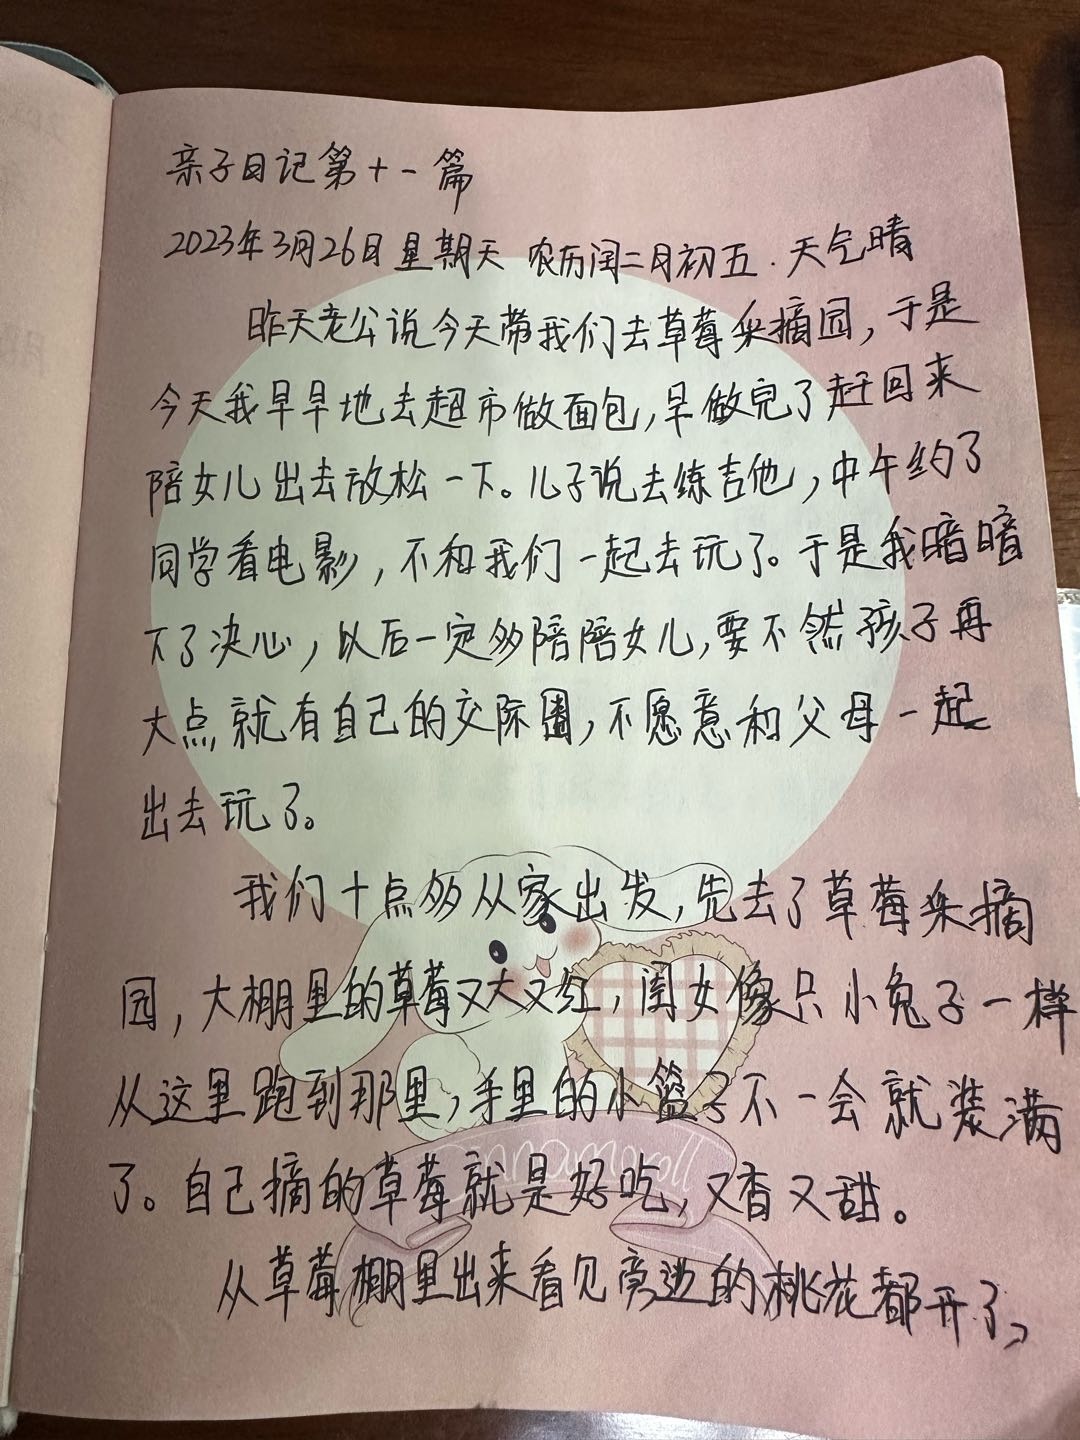 亲子日记第十一篇
2023年3月26日 星期天 农历闰二月初五.天气晴
昨天老公说今天带我们去草莓采摘园,于是
今天我早早地去超市做面包,早做完了赶回来
陪女儿出去放松一下。儿子说去练吉他,中午约了
同学看电影,不和我们一起去玩了。于是我暗暗
下了决心,以后一定多陪陪女儿,要不然孩子再
大点就有自己的交际圈,不愿意和父母一起
出去玩了。
我们十点多从家出发,先去了草莓采摘
园,大棚里的草莓又大又红,闺女像只小兔子一样
从这里跑到那里,手里的小篮子不一会就装满
了。自己摘的草莓就是好吃,又香又甜。
Cinnamoroll
从草莓棚里出来看见旁边的桃花都开了,